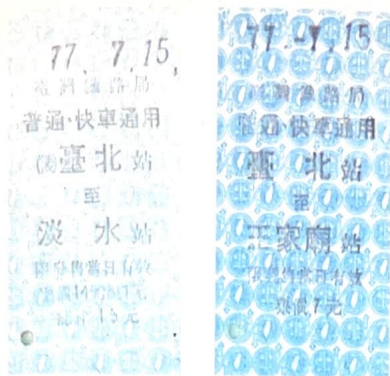 77. 7. 15,
臺灣鐵路局
普通·快車通用
臺北站
至
淡水站
限發售當日有效
77. -7. 15
臺灣鐵路局
普通·快車通用
臺北站
至
王家廟站
限發售當日有效
票價7元